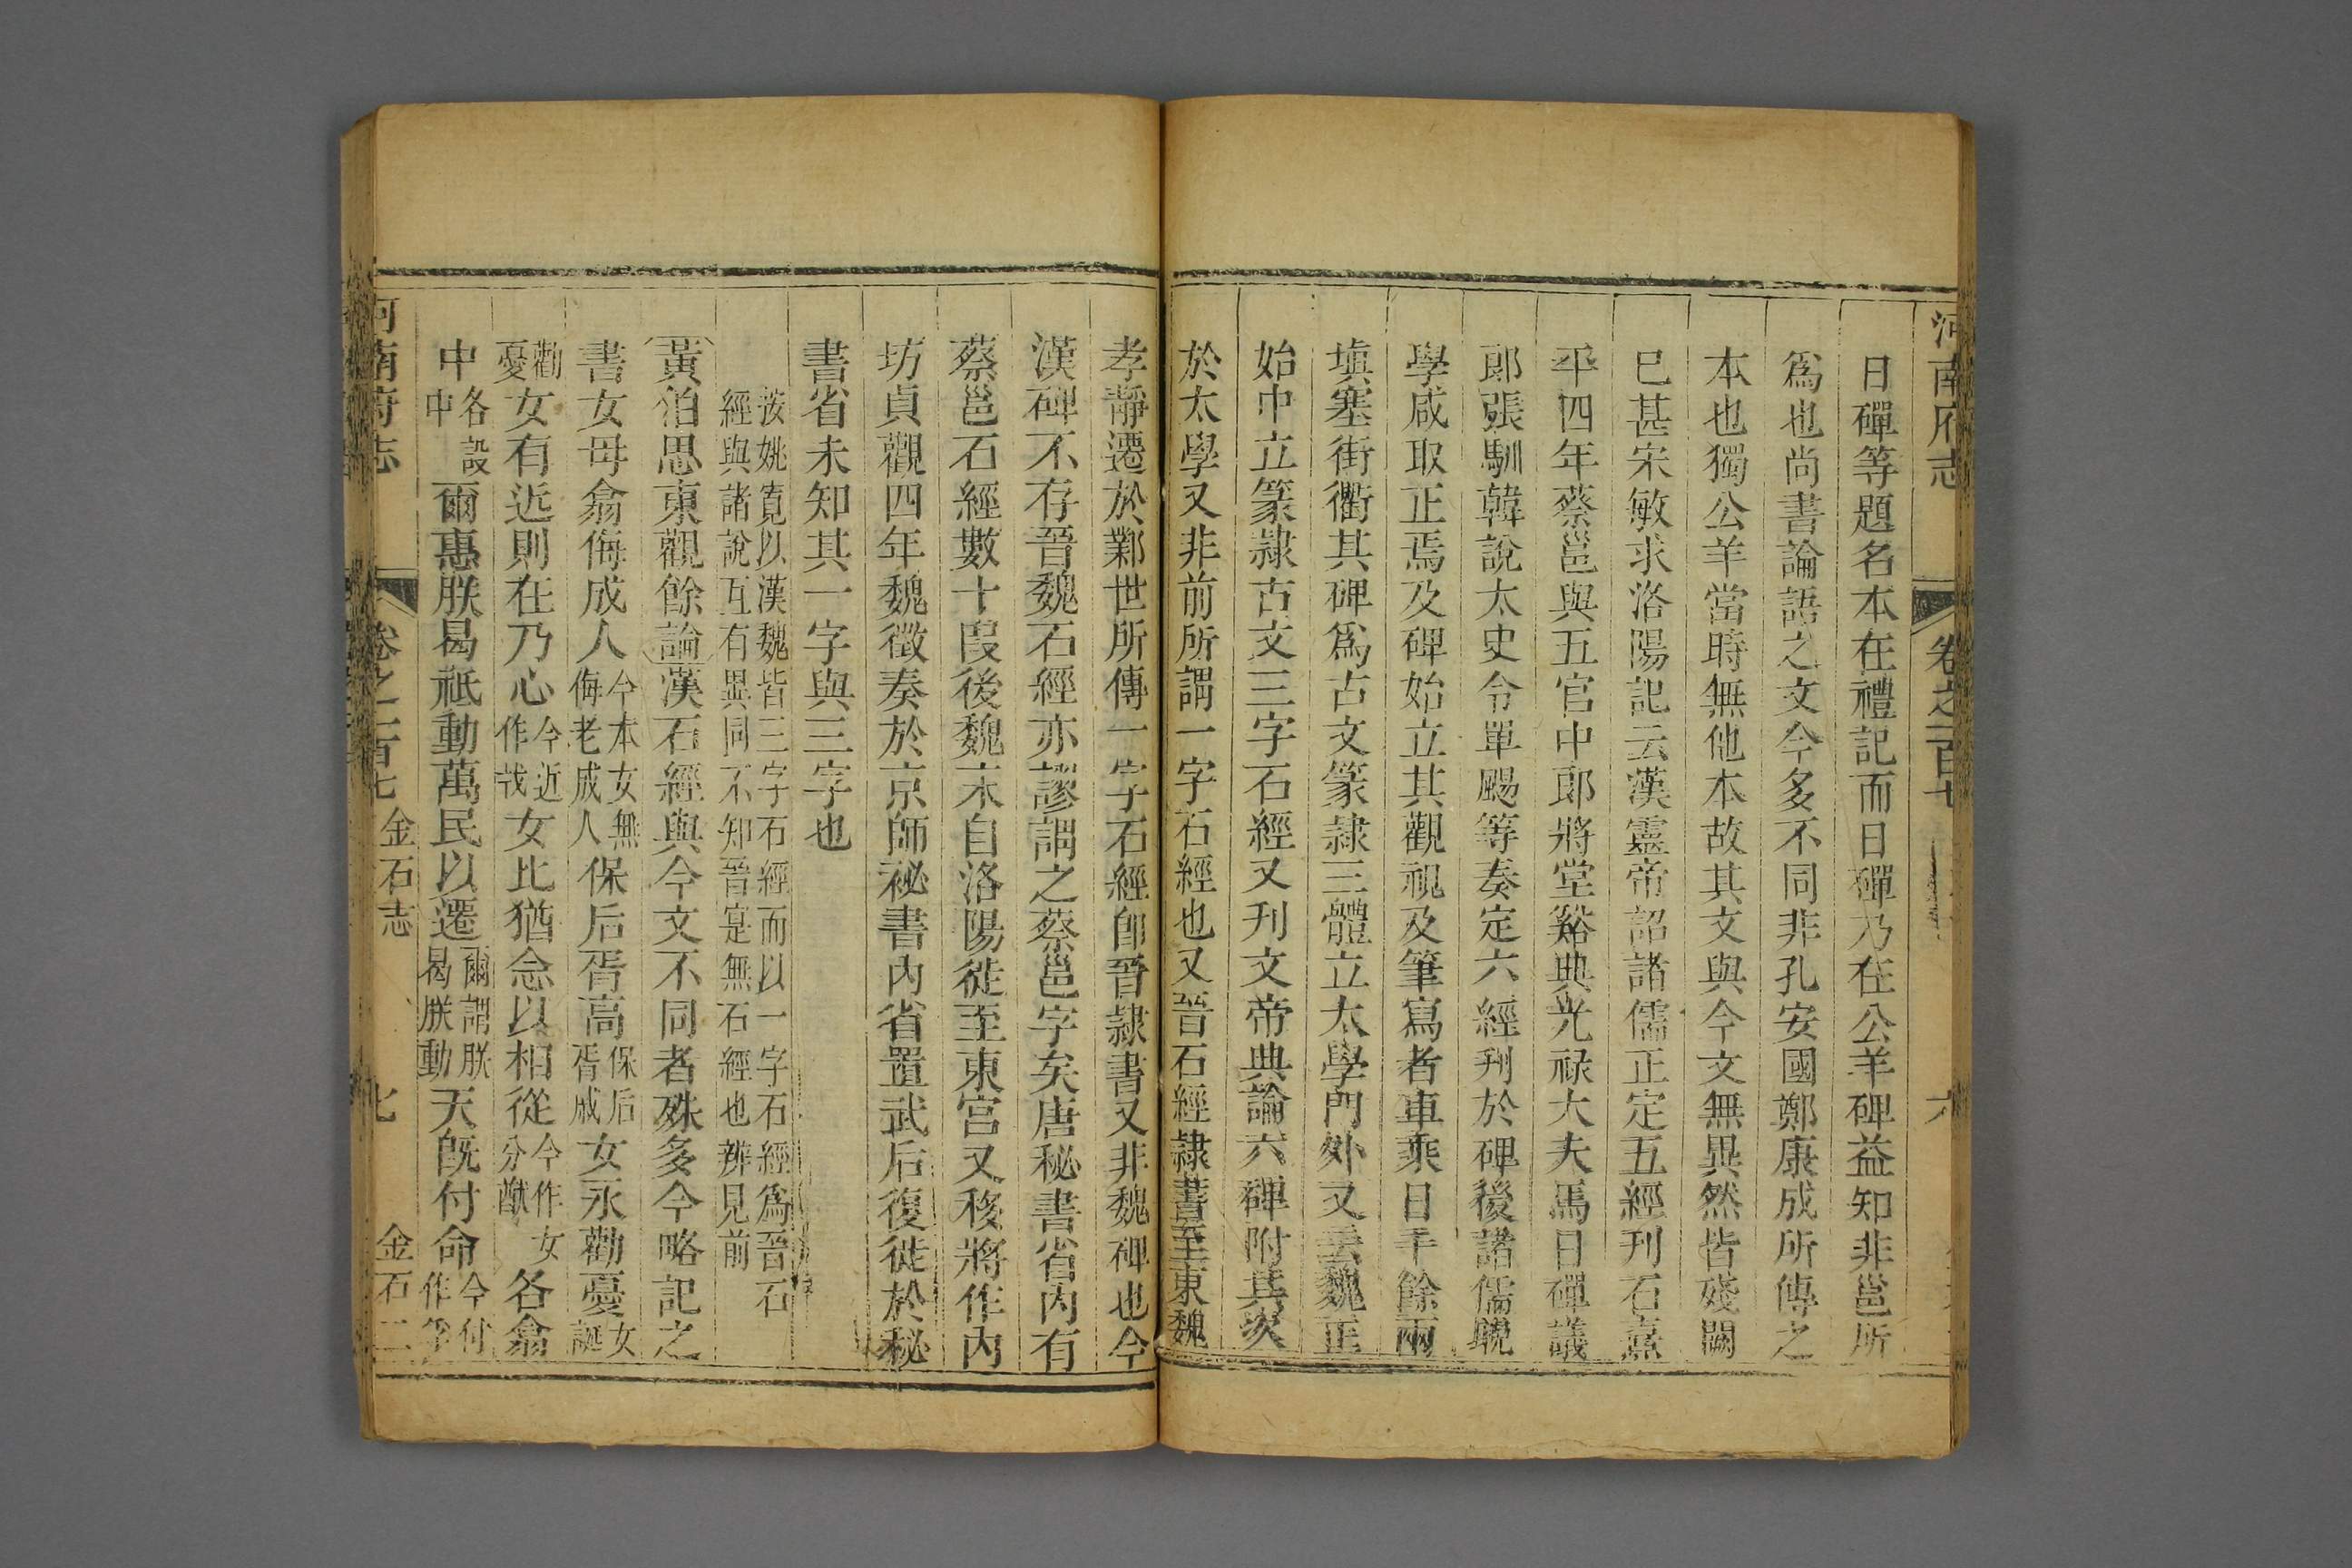 河南府志 卷之一百七 六
日磾等題名本在禮記而日磾乃在公羊碑益知非邕所
爲也尚書論語之文今多不同非孔安國鄭康成所傳之
本也獨公羊當時無他本故其文與今文無異然皆殘闕
巳甚宋敏求洛陽記云漢靈帝詔諸儒正定五經刊石熹
平四年蔡邕與五官中郎將堂谿典光禄大夫馬日磾議
郎張馴韓說太史令單颺等奏定六經刊於碑後諸儒晚
學咸取正焉及碑始立其觀視及筆寫者車乘日千餘兩
塡塞街衢其碑爲古文篆隷三體立太學門外又云魏正
始中立篆隷古文三字石經又刊文帝典論六碑附其次
於太學又非前所謂一字石經也又晉石經隷書至東魏
孝靜遷於鄴世所傳一字石經卽晉隷書又非魏碑也今
漢碑不存晉魏石經亦謬謂之蔡邕字矣唐秘書省内有
蔡邕石經數十段後魏末自洛陽徙至東宮又移將作内
坊貞觀四年魏徵奏於京師祕書内省置武后復徙於秘
書省未知其一字與三字也
按姚寛以漢魏皆三字石經而以一字石經爲晉石
經與諸說互有異同不知晉寔無石經也辨見前
黃伯思東觀餘論漢石經與今文不同者殊多今略記之
書女毋翕侮成人今本女無侮老成人保后胥高保后胥戚女永勸憂女誕
勸憂女有近則在乃心今近作戕女比猶念以相從今作女分猷各翕
中各設中爾惠朕曷祗動萬民以遷爾謂朕曷動天旣付命今付作孚
河南府志 卷之一百七 金石志 七 金石二